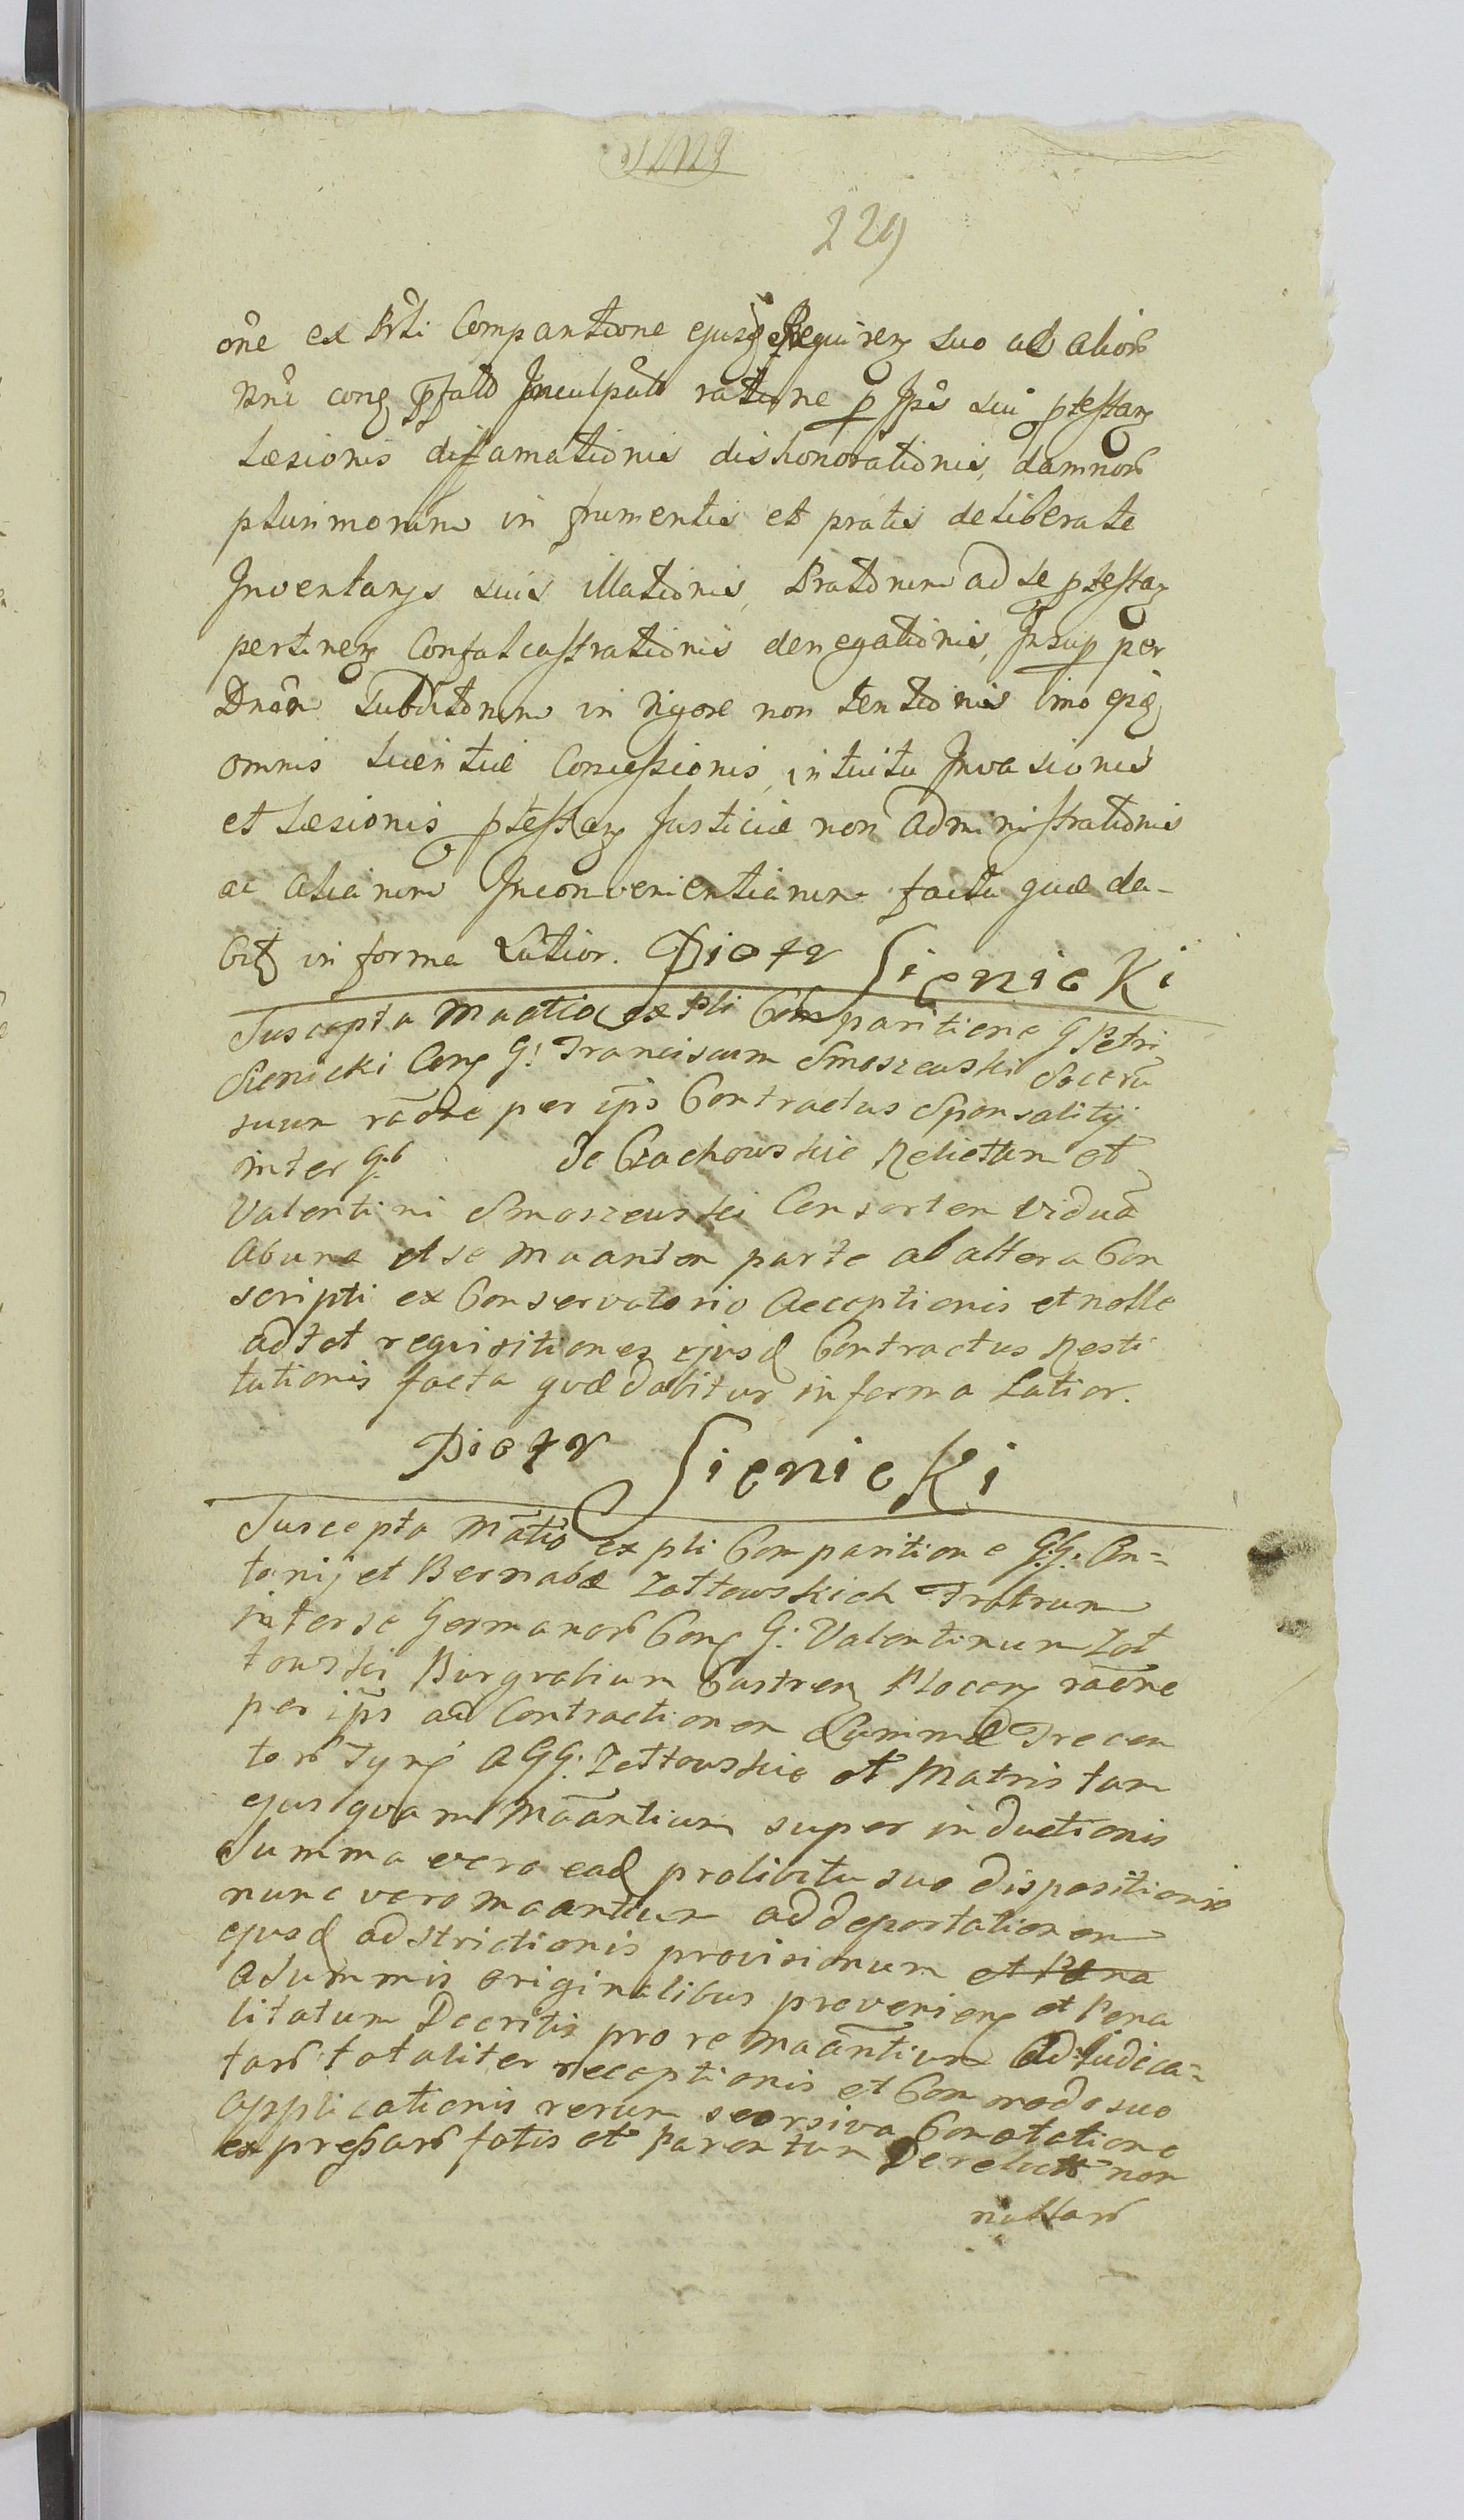 229
one ex Prti Comparitione ejusq suo ad alior
cong ratione p Ipm sui ptestan
Læsionis difamationis dishonorationis, damnor
plurimorum in frumentis et pratis deliberate
Inventarys suis illationis, Pratorum ad se ptestan
pertinen Confalcastrationis denegationis, Insup per
Dnõr Subditorum in rigore non tentionis imo
omnis licentiæ Concessionis, intuitu Invasionis
et Læsionis ptestan Justiciæ non administrationis
ac aliarum Inconvenientiarum facta quæ da-
bitq in forma Latior. Piotr Sienicki
Suscepta Maatio ex pli Comparitione G Petri
Sienicki Conq G: Franciscum Smoszewski Socerũ
suum raõne per ipm Contractus Sponsalitij
inter G. de Grachowskie Relictam et
Valentini Smoszewski Consortem viduã
ab una et se Maantem parte ab altera Con
scripti ex Conservatorio Acceptionis et nolle
ad tot requisitiones ejusd Contractus Resti
tutionis facta quæ dabitur in forma Latior.
Piotr Sienicki
Suscepta Mãtio ex pli Comparitione GG: An=
tonij et Bernabæ Zottowskich Fratrum
inter se Germanor Conq G: Valentinum Zot
towski Burgrabium Castren Plocen raõne
per ipm ad Contractionem Summæ Trecen
tor Tynf a GG: Zottowskie et Matris tam
ejus quam Maãntium super inductionis
Summa vero ead prolibitu suo dispositionis
nunc vero Maantium ad deportationem
ejusd adstrictionis provisionum et Pena
a Summis originalibus provenien et Pena
litatum Decretis pro re Maãntium adjudica=
tar totaliter receptionis et Commodo suo
applicationis rerum seorsiva Conotatione
expressar fatis et Parentum Derelict non
nullar